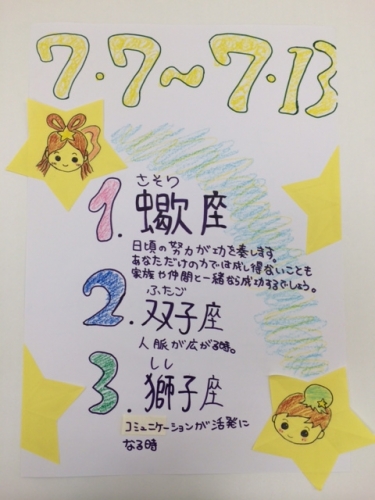 7・7〜7・13
さそり
1.蠍座
日頃の努力が功を奏します。
あなただけの力では成し得ないことも
家族や仲間と一緒なら成功するでしょう。
ふたご
2.双子座
人脈が広がる時。
しし
3.獅子座
コミュニケーションが活発に
なる時